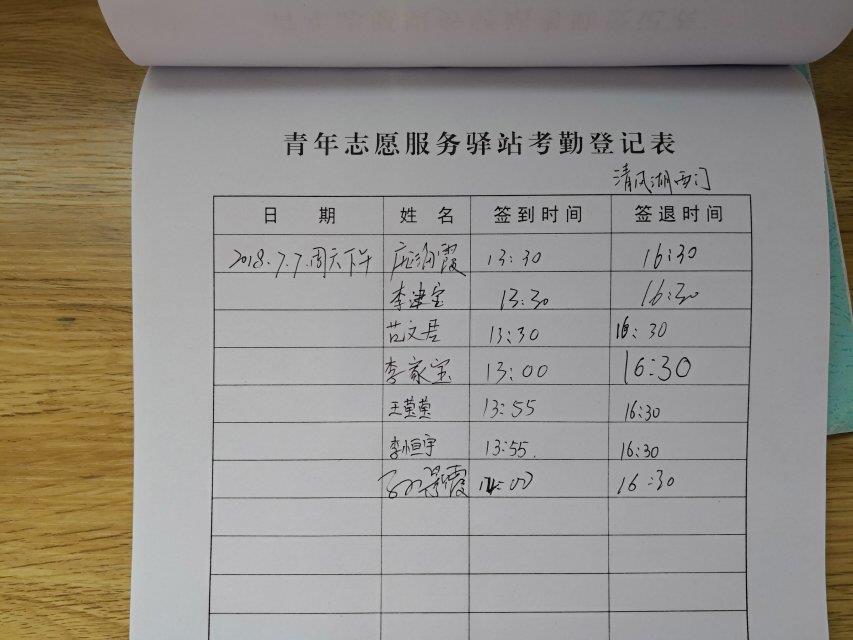 青年志愿服务驿站考勤登记表
清风湖西门
日期 姓名 签到时间 签退时间
2018.7.7.周六下午 霞 13:30 16:30
李津宝 13:30 16:30
范文居 13:30 16:30
李家宝 13:00 16:30
王莹莹 13:55 16:30
李恒宇 13:55. 16:30
孙景霞 14:00 16:30